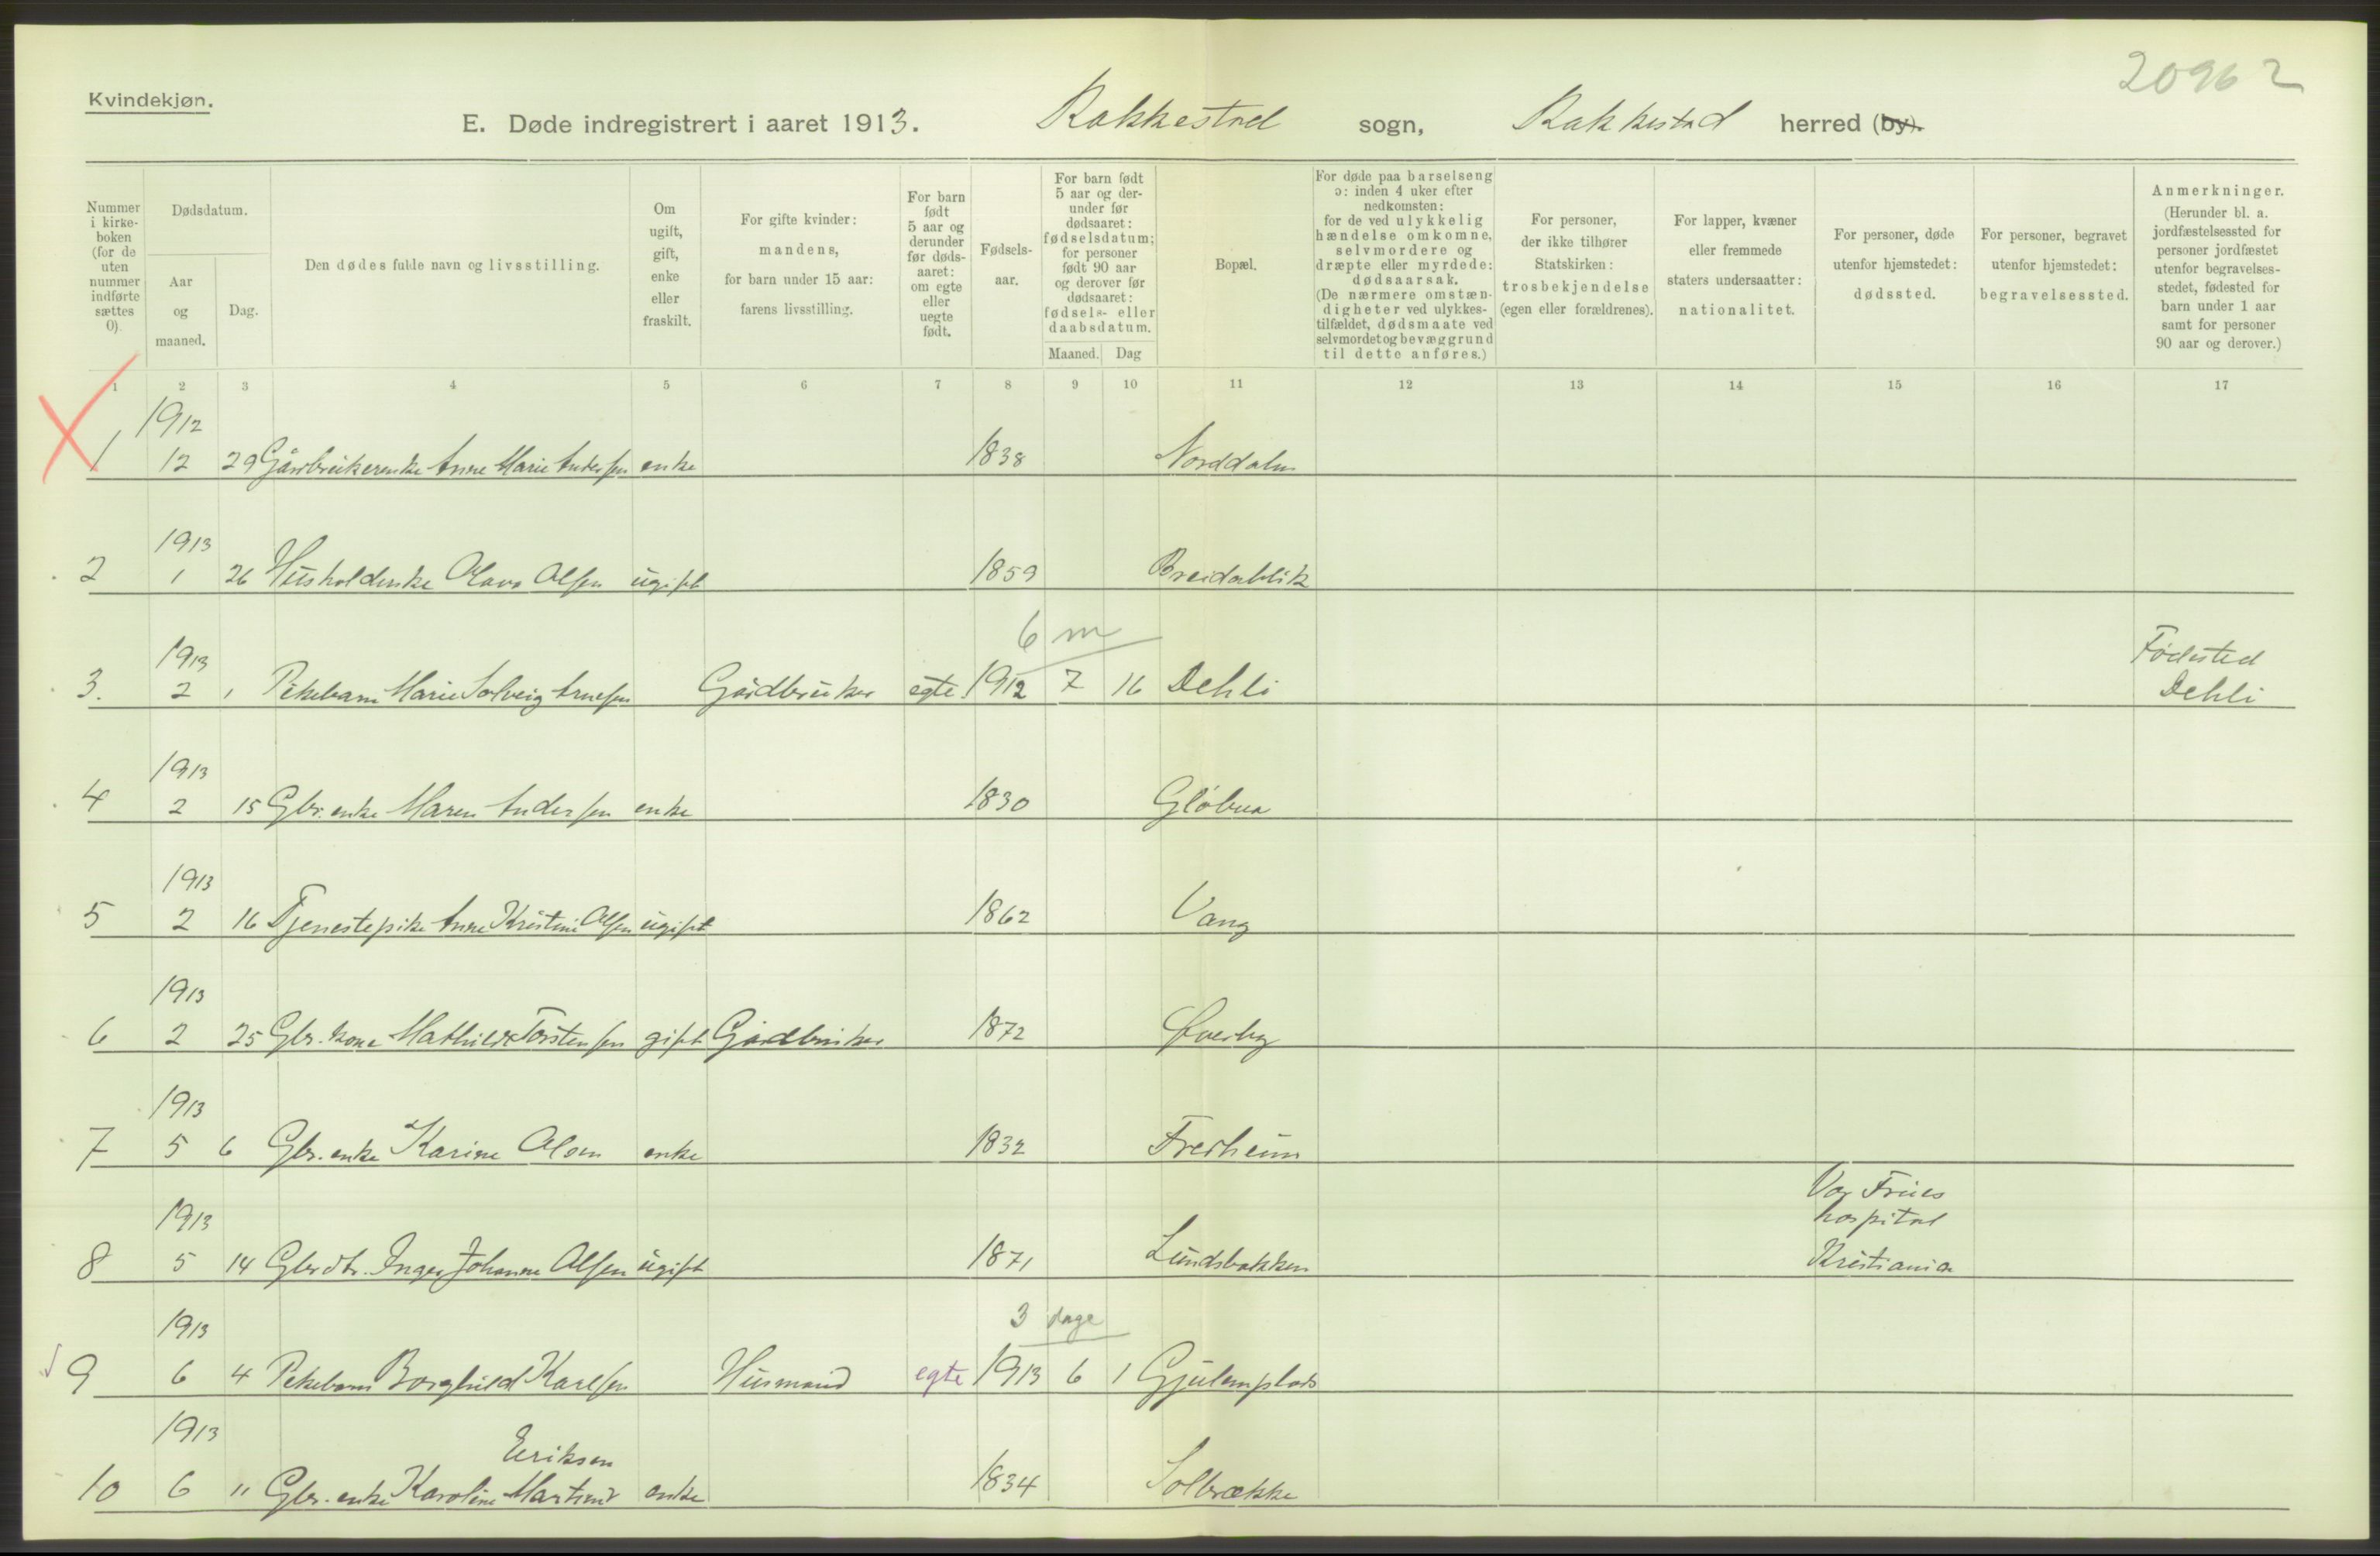 20962
Kvindekjøn.
E. Døde indregistrert i aaret 1913. Rakkestad sogn, Rakkestad herred (by).
Nummer i kirke-boken (for de uten nummer indførte sættes 0).
Dødsdatum.
Aar og maaned.
Dag.
Den dødes fulde navn og livsstilling.
Om ugift, gift, enke eller fraskilt.
For gifte kvinder: mandens, for barn under 15 aar: farens livsstilling.
For barn født 5 aar og derunder før døds-aaret: om egte eller uegte født.
Fødsels-aar.
For barn født 5 aar og der-under før dødsaaret: fødselsdatum; for personer født 90 aar og derover før dødsaaret: fødsels- eller daabsdatum.
Maaned. Dag
Bopæl.
For døde paa barselseng ɔ: inden 4 uker efter nedkomsten: for de ved ulykkelig hændelse omkomne, selvmordere og dræpte eller myrdede: dødsaarsak. (De nærmere omstæn-digheter ved ulykkes-tilfældet, dødsmaate ved selvmordet og bevæggrund til dette anføres.)
For personer, der ikke tilhører Statskirken: trosbekjendelse (egen eller forældrenes).
For lapper, kvæner eller fremmede staters undersaatter: nationalitet.
For personer, døde utenfor hjemstedet: dødssted.
For personer, begravet utenfor hjemstedet: begravelsessted.
Anmerkninger. (Herunder bl. a. jordfæstelsessted for personer jordfæstet utenfor begravelses-stedet, fødested for barn under 1 aar samt for personer 90 aar og derover.)
1 2 3 4 5 6 7 8 9 10 11 12 13 14 15 16 17
1912
1 12 29 Gårdbrukerenke Anne Marie Andersen enke 1838 Norddalen
1913
2 1 26 Husholderske Olava Olsen ugift 1859 Breidablik
6 m
1913 Fødested
3. 2 1 Pikebarn Marie Solveig Arnesen Gårdbruker egte 1912 7 16 Dehli Dehli
1913
4 2 15 Gbr. enke Maren Andersen enke 1830 Gløbua
1913
5 2 16 Tjenestepike Anne Kristine Olsen ugift 1862 Vang
1913
6 2 25 Gbr. kone Mathilde Torstensen gift Gårdbruker 1872 Øverby
1913
7 5 6 Gbr. enke Karine Olsen enke 1832 Fredheim
1913 Vor Frues hospital
8 5 14 Gbrdtr. Inger Johanne Olsen ugift 1871 Lundsbakken Kristiania
1913 3 dage
9 6 4 Pikebarn Borghild Karlsen Husmand egte 1913 6 1 Gjulemplads
1913 Eriksen
10 6 11 Gbr. enke Karoline enke 1834 Solbrække